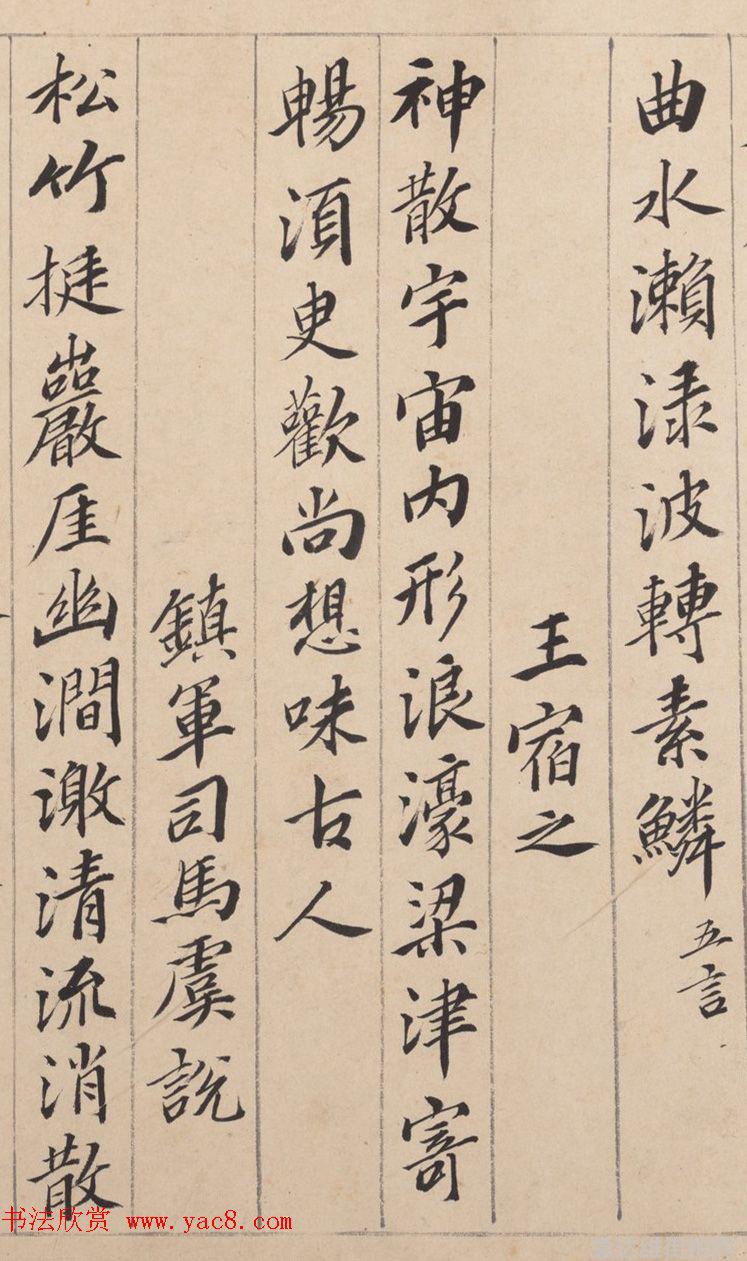 曲水瀨渌波轉素鱗 五言
王宿之
神散宇宙内形浪濠梁津寄
暢湏臾歡尚想味古人
鎮軍司馬虞說
松竹挺巖厓幽澗激清流消散
书法欣赏 www.yac8.com